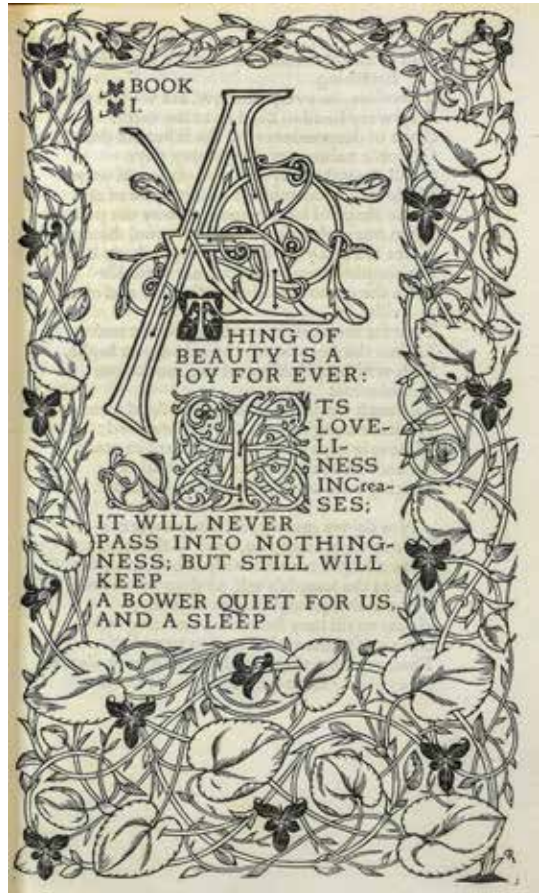 BOOK
I.
A
THING OF
BEAUTY IS A
JOY FOR EVER:
ITS
LOVE-
LI-
NESS
INCrea-
SES;
IT WILL NEVER
PASS INTO NOTHING-
NESS; BUT STILL WILL
KEEP
A BOWER QUIET FOR US,
AND A SLEEP